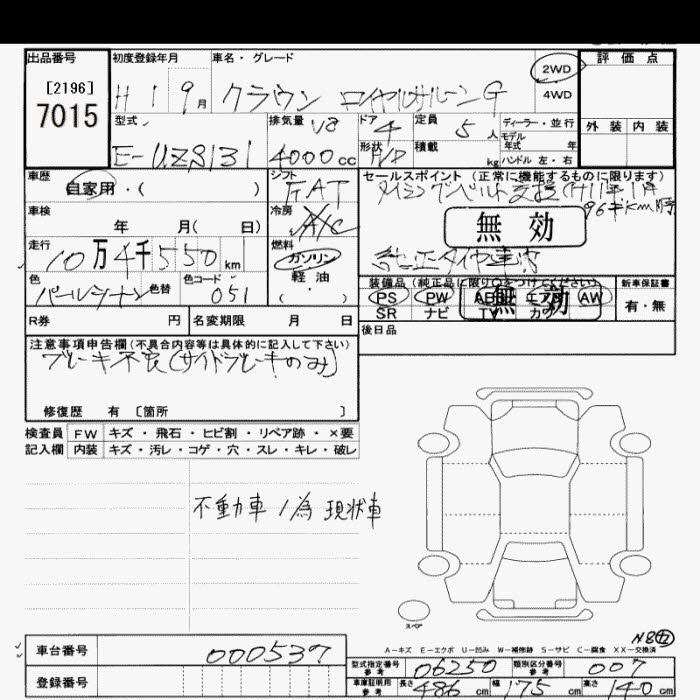 出品番号
初度登録年月
車名・グレード
2WD
4WD
評価点
[2196]
7015
H 1 9月
クラウン ロイヤルサルーンG
外装
内装
型式
排気量
ドア
定員
ディーラー・並行
モデル年式 年
E-UZS131
V8
4000cc
4
5人
形状
H/D
積載 kg
ハンドル 左・右
車歴
自家用・( )
シフト
FAT
セールスポイント (正常に機能するものに限ります)
タイミングベルト交換 (H11年1月
96千km時
車検
年 月( 日)
冷房
A/C
無効
走行
10万4千550km
燃料
ガソリン
軽・油
・( )
純正タイヤ
色
パールツートン
色替
色コード
051
装備品 (純正品に限り○をつけてください)
PS
PW
ABS
エアB
AW
SR
ナビ
TV
カワ
無効
新車保証書
有・無
R券 円
名変期限 月 日
後日品
注意事項申告欄(不具合内容等は具体的に記入して下さい)
ブレーキ不良(サイドブレーキのみ)
修復歴 有 〔箇所 〕
検査員 FW キズ・飛石・ヒビ割・リペア跡・×要
記入欄 内装 キズ・汚レ・コゲ・穴・スレ・キレ・破レ
不動車ノ為 現状車
スペア
N8 五
A-キズ E-エクボ U-凹み W-補修跡 S-サビ C-腐食 XX-交換済
車台番号
000537
型式指定番号 参考
06250
類別区分番号 参考
007
登録番号
車庫証明用 参考
長さ 486cm
幅 175cm
高さ 140cm